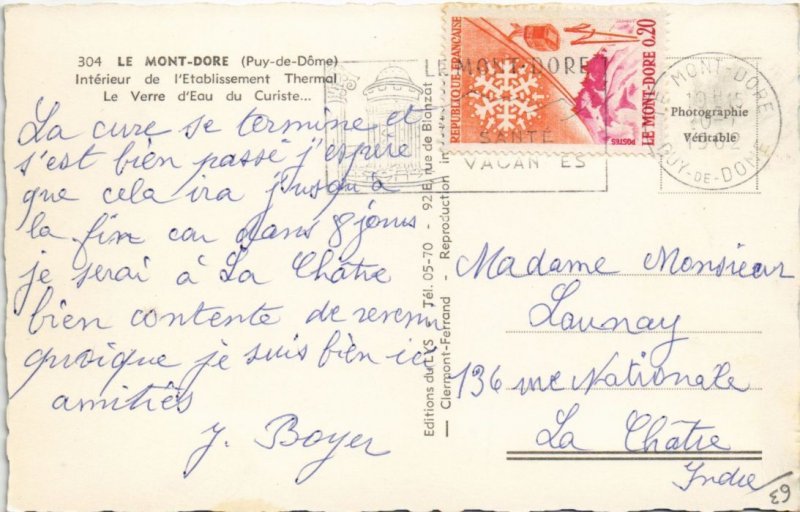 304 LE MONT-DORE (Puy-de-Dôme)
Intérieur de l'Etablissement Thermal
Le Verre d'Eau du Curiste...
La cure se termine et
s'est bien passé j'espère
que cela ira jusqu'à
la fin car dans 8 jours
je serai à La Châtre
bien contente de revenir
quoique je suis bien ici
amitiés
J. Boyer
Editions du LYS Tél. 05-70 - 92 E, rue de Blanzat
Clermont-Ferrand - Reproduction in
REPUBLIQUE FRANÇAISE
LE MONT-DORE 0,20
POSTES
LE MONT-DORE
SANTÉ
VACANCES
LE MONT-DORE
19H15
1962
PUY-DE-DOME
Photographie
Véritable
Madame Monsieur
Launay
136 rue Nationale
La Châtre
Indre
63